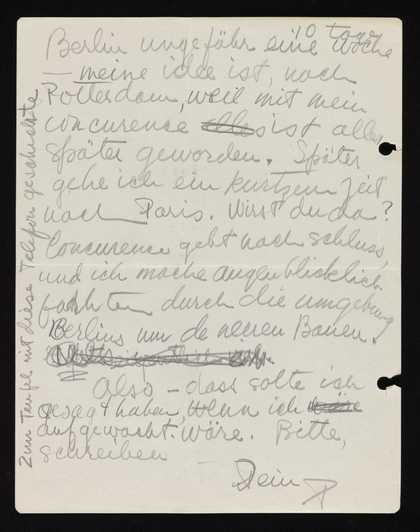 10 tage
Berlin ungefähr eine Woche
— meine idee ist, nach
Rotterdam, weil mit mein
concurence alles ist alles
später geworden. Später
gehe ich ein kurtzen zeit
nach Paris. Wirst du da?
Concurence geht nach schluss,
und ich mache augenblicklich
fahrten durch die umgebung
Berlins um de neuen Bauen.
Also — dass solte ich
gesagt haben wenn ich
aufgewacht wäre. Bitte,
schreiben
Dein
Zum Teufel mit diese Telefon geschichte